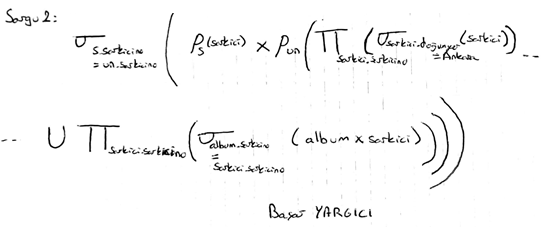 Sorgu 2:
σ s.sarkicino = un.sarkicino ( ρ s (sarkici) × ρ un ( Π sarkici.sarkicino ( σ sarkici.doğumyer = Ankara (sarkici)) ...
... ∪ Π sarkici.sarkicino ( σ album.sarkicino = sarkici.sarkicino (album × sarkici))))
Başar YARGICI